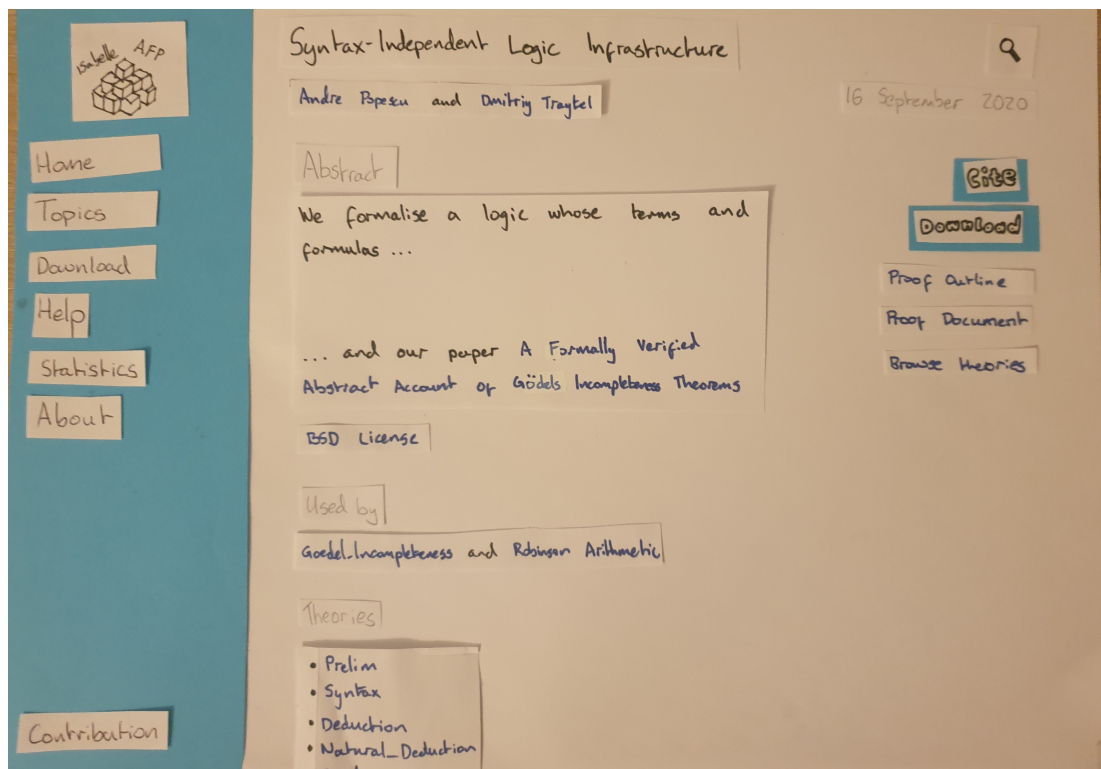 Isabelle AFP
Home
Topics
Download
Help
Statistics
About
Contribution
Syntax-Independent Logic Infrastructure
Andre Popescu and Dmitriy Traytel
16 September 2020
Abstract
We formalise a logic whose terms and
formulas ...
... and our paper A Formally Verified
Abstract Account of Gödels Incompleteness Theorems
BSD License
Used by
Goedel_Incompleteness and Robinson Arithmetic
Theories
• Prelim
• Syntax
• Deduction
• Natural_Deduction
Cite
Download
Proof Outline
Proof Document
Browse theories